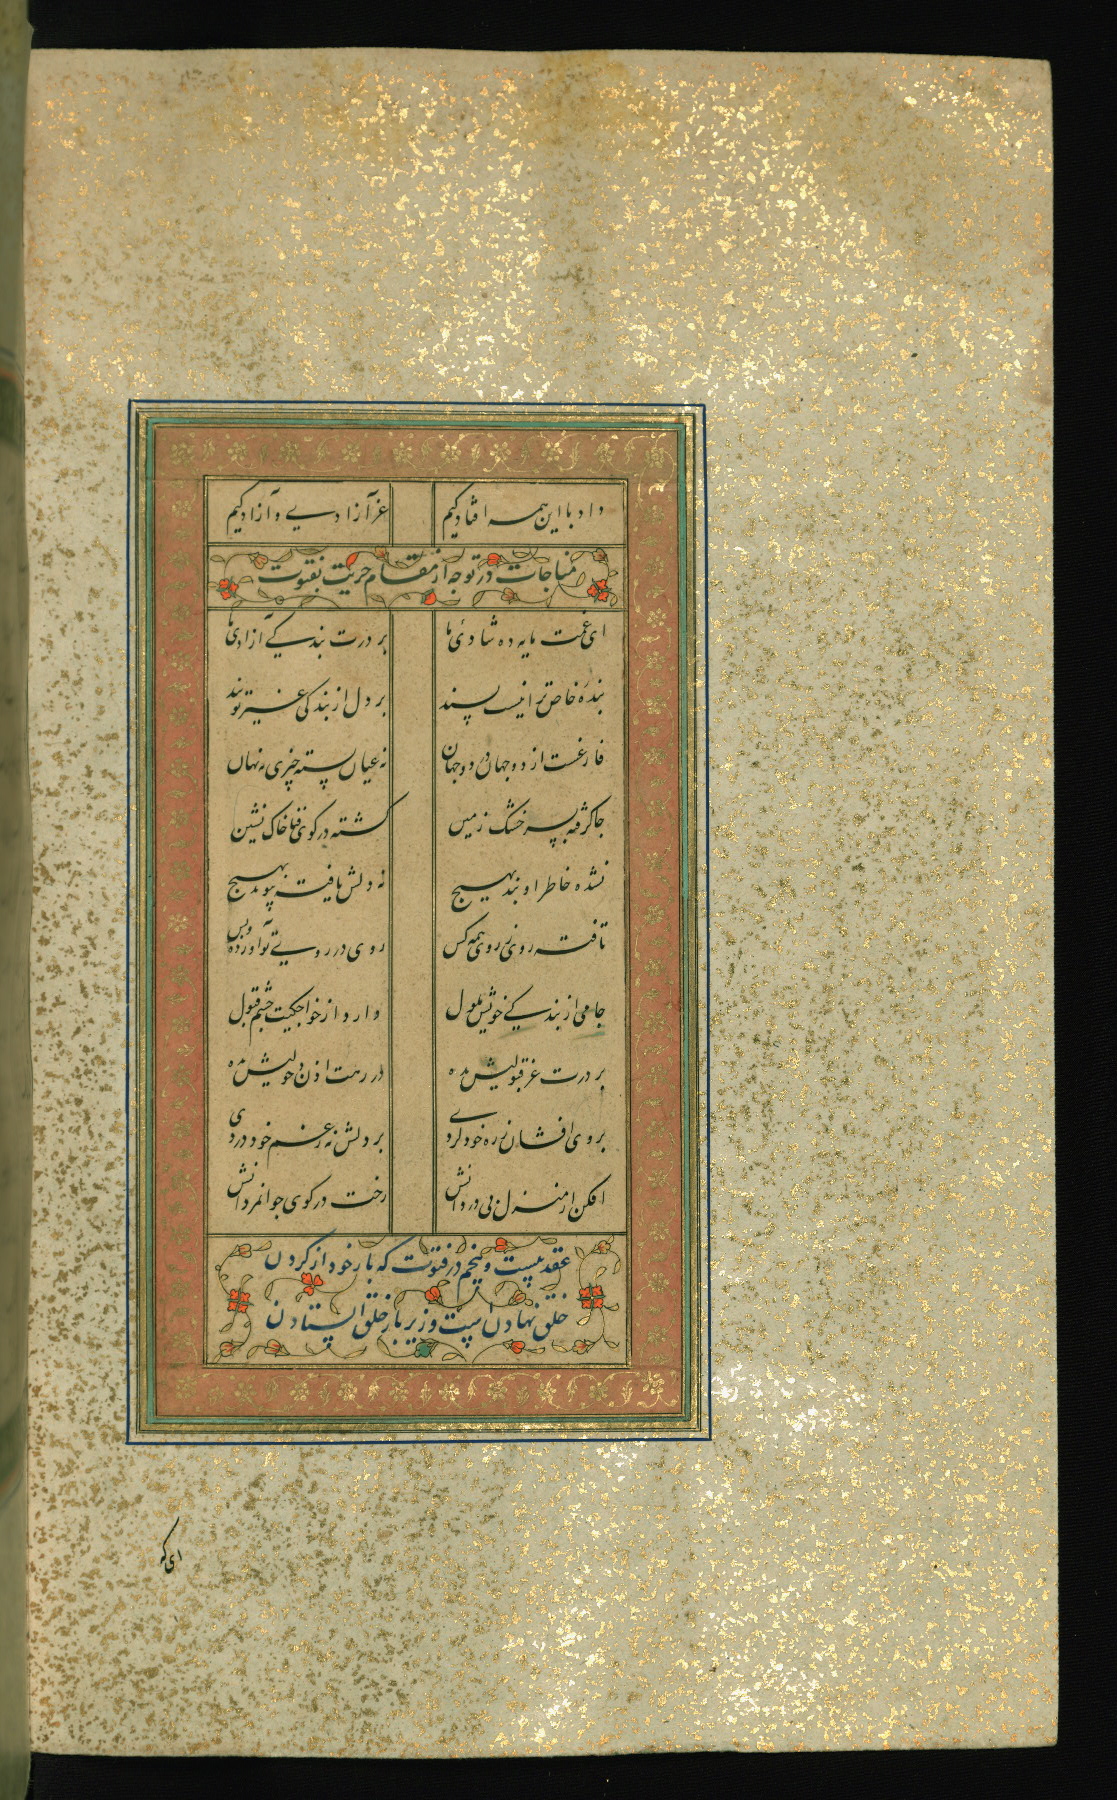 داد با این همه افتادگیم عز آزادی و آزادگیم
مناجات در توجه از مقام حریت بفتوت
ای غمت مایه ده شادی‌ها بر درت بندگی آزادی‌ها
بنده خاص ترا نیست پسند بر دل از بندگی غیر تو بند
فارغست از دو جهان در دو جهان نه عیان بسته چیزی نه نهان
جا گرفته بسر خشک زمین گشته در کوی فنا خاک نشین
نشده خاطر او بند بهیچ نه دلش یافته پیوند بهیچ
تافته روی ز روی همه کس روی در روی تو آورده و بس
جامی از بندگی خویش ملول دارد از خواجگیت چشم قبول
بر درت عز قبولیش بده در رهت اذن دخولیش بده
بروی افشان ز ره خود گردی بر دلش نه ز غم خود دردی
افکن از منزل بی دردانش رخت در کوی جوانمردانش
عقد بیست و پنجم در فتوت که بار خود از گردن
خلق نهادن است و زیر بار خلق ایستادن
ای که